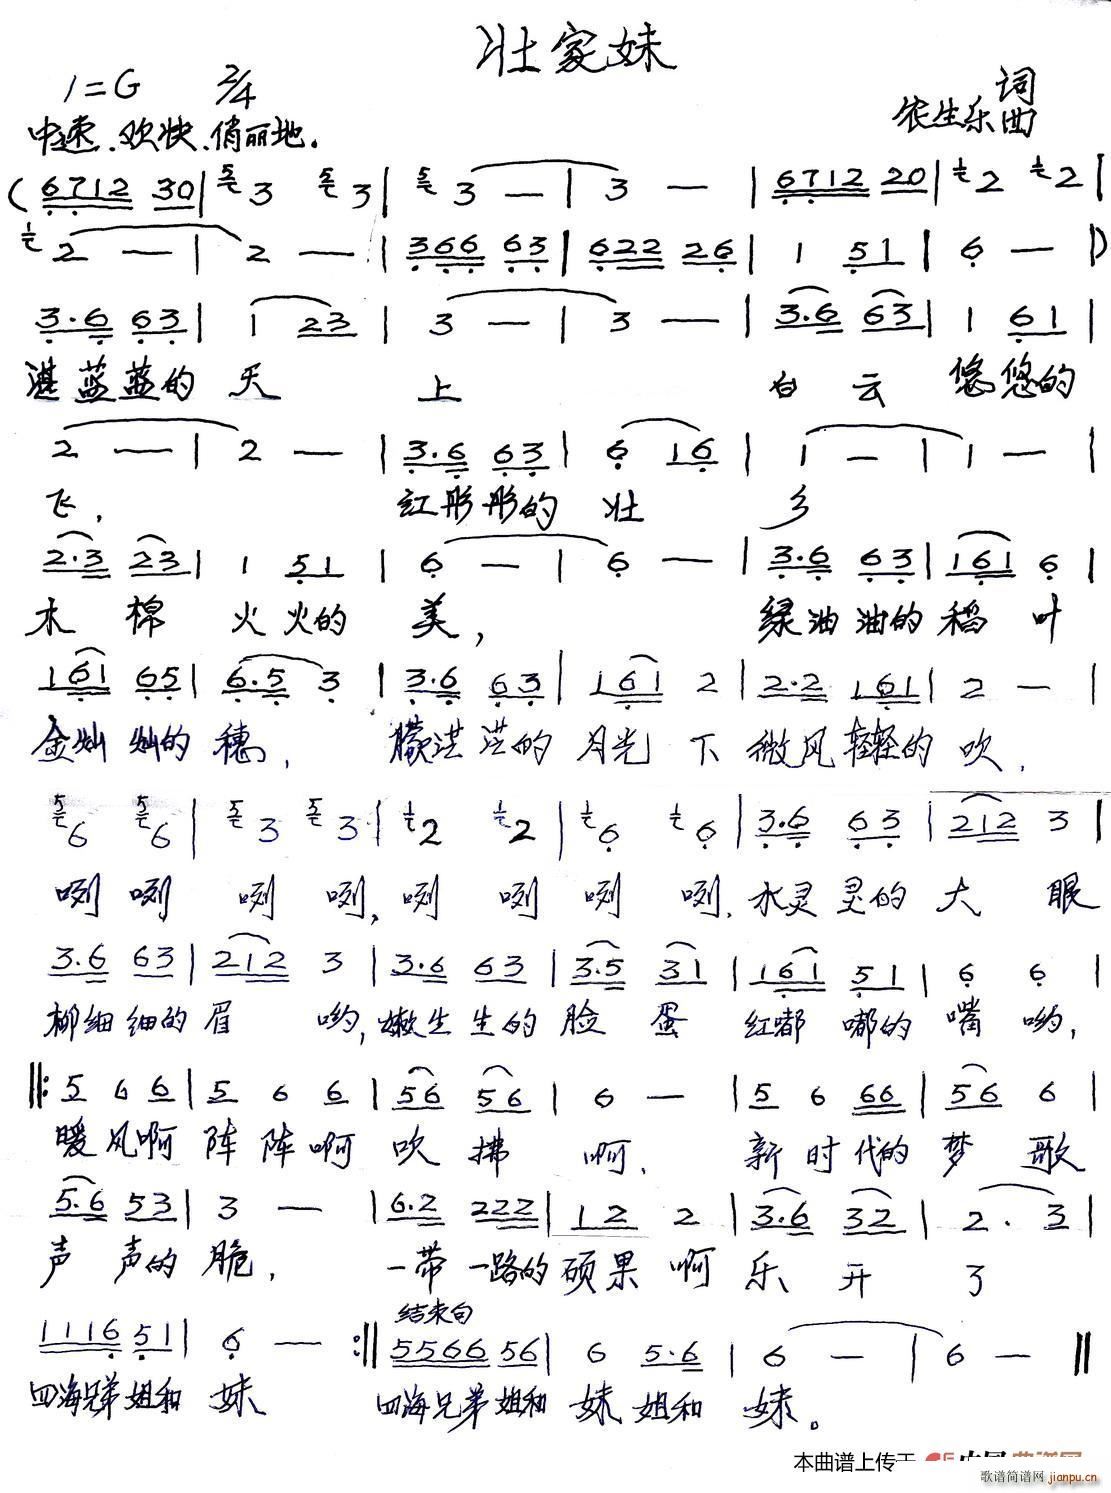 壮家妹
1=G 2/4
词
中速、欢快、俏丽地。
侬生乐 曲
(6712 30 | 3 3 | 3 — | 3 — | 6712 20 | 2 2 |
2 — | 2 — | 366 63 | 622 26 | 1 51 | 6 — |)
3·6 63 | 1 23 | 3 — | 3 — | 3·6 63 | 1 61 |
湛蓝蓝的天 上 白云 悠悠的
2 — | 2 — | 3·6 63 | 6 16 | 1 — | 1 — |
飞, 红彤彤的 壮 乡
2·3 23 | 1 51 | 6 — | 6 — | 3·6 63 | 161 6 |
木 棉 火火的 美, 绿油油的稻叶
161 65 | 6·5 3 | 3·6 63 | 161 2 | 2·2 161 | 2 — |
金灿灿的穗, 朦茫茫的月光下 微风轻轻的吹,
6 6 | 3 3 | 2 2 | 6 6 | 3·6 63 | 212 3 |
咧咧 咧咧,咧咧咧咧,水灵灵的大眼
3·6 63 | 212 3 | 3·6 63 | 3·5 31 | 161 51 | 6 6 |
柳细细的眉 哟,嫩生生的脸蛋 红嘟嘟的嘴哟,
‖: 5 6 6 | 5 6 6 | 56 56 | 6 — | 5 6 66 | 56 6 |
暖风啊阵阵啊吹拂 啊, 新时代的梦歌
5·6 53 | 3 — | 6·2 222 | 12 2 | 3·6 32 | 2· 3 |
声声的脆, 一带一路的硕果啊乐开了
结束句
1116 51 | 6 — :‖ 5566 56 | 6 5·6 | 6 — | 6 — ‖
四海兄弟姐和 妹 四海兄弟姐和 妹 姐和 妹。
本曲谱上传于
歌谱简谱网 jianpu.cn